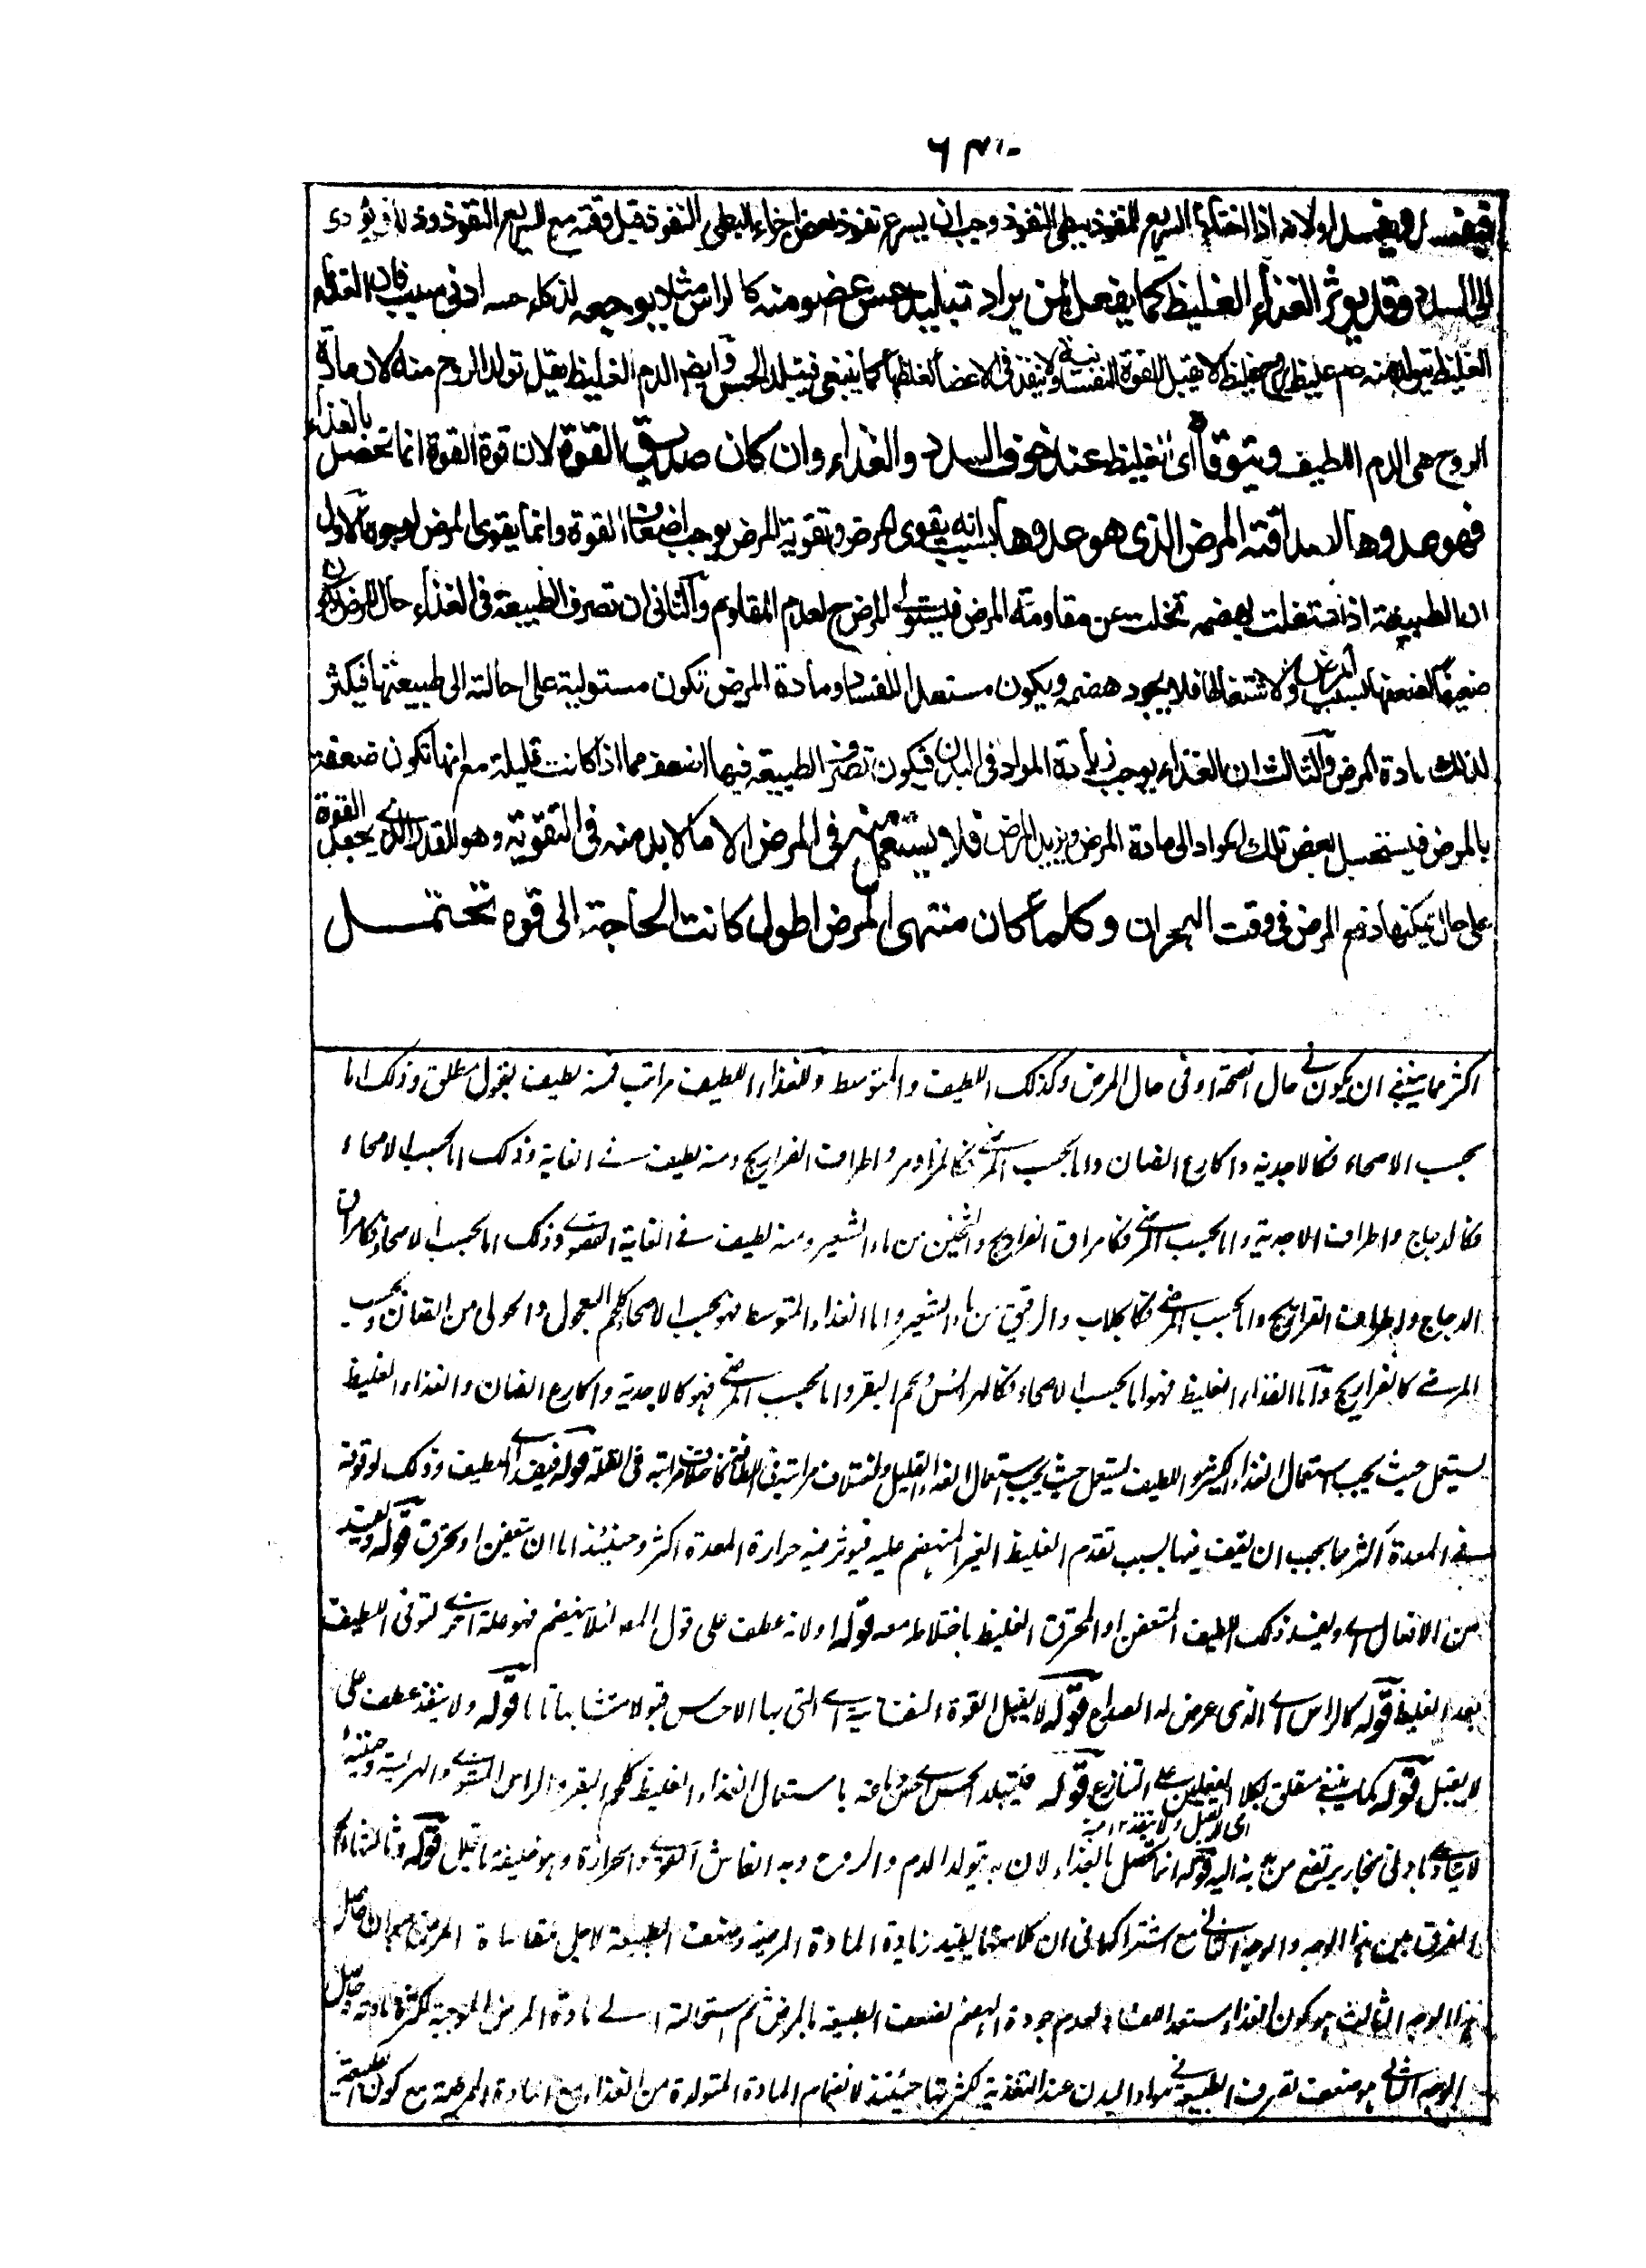 فيفسد ويفسد اولانه اذا اختلط السريع النفوذ ببطى النفوذ وجب ان يسرع نفوذ بعض اجزاء البطى النفوذ قبل وقته مع السريع النفوذ وذلك يؤدى
الى السدد وقد يوثر الغذاء الغليظ كما يفعل لمن يراد تبليد حس عضو منه كالراس مثلا يوجعه لذكاء حسه ادنى سبب فان الغذاء
الغليظ يتولد منه دم غليظ وروح غليظ لا يقبل القوة النفسانية ولا ينفذ فى الاعضاء لغلظها كما ينبغى فيتبلد الحس وايضا الدم الغليظ يقل تولد الروح منه لان مادة
الروح هى الدم اللطيف ويتوقاه اى الغليظ عند خوف السدد والغذاء وان كان صديق القوة لان قوة القوة انما تحصل بالغذاء
فهو عدوها لصداقته المرض الذى هو عدوها بسبب انه يقوى المرض وتقوية المرض يوجب اضعاف القوة وانما يقوى المرض لوجوه الاول
ان الطبيعة اذا اشتغلت بهضمه تخلت عن مقاومة المرض فيستولى المرض ح لعدم المقاوم والثانى ان تصرف الطبيعة فى الغذاء حال المرض يكون
ضعيفا لضعفها بسبب المرض ولاشتغالها فلا يجود هضمه ويكون مستعدا للفساد ومادة المرض تكون مستولية على احالته الى طبيعتها فيكثر
لذلك مادة المرض والثالث ان الغذاء يوجب زيادة المواد فى البدن فيكون تصرف الطبيعة فيها اضعف مما اذا كانت قليلة مع انها تكون ضعيفة
بالمرض فيستحيل بعض تلك المواد الى مادة المرض ويزيد المرض فلا يستعمل منه فى المرض الا ما لابد منه فى التقوية وهو القدر الذى يجعل القوة
على حال يمكنها دفع المرض فى وقت البحران وكلما كان منتهى المرض اطول كانت الحاجة الى قوة تحتمل
اكثر مما ينبغى ان يكون فى حال الصحة او فى حال المرض وكذلك اللطيف والمتوسط وللغذاء اللطيف مراتب فمنه لطيف بقول مطلق وذلك اما
بحسب الاصحاء فكالاجدية واكارع الضان واما بحسب المرضى فكالمزاور واطراف الفراريج ومنه لطيف فى الغاية وذلك اما بحسب الاصحاء
فكالدجاج واطراف الاجدية واما بحسب المرضى فكامراق الفراريج والثخين من ماء الشعير ومنه لطيف فى الغاية القصوى وذلك اما بحسب الاصحاء فكامراق
الدجاج واطراف الفراريج واما بحسب المرضى فكالجلاب والرقيق من ماء الشعير واما الغذاء المتوسط فهو بحسب الاصحاء كلحم العجول والحولى من الضان وبحسب
المرضى كالفراريج واما الغذاء الغليظ فهو اما بحسب الاصحاء فكالهرائس ولحم البقر واما بحسب المرضى فهو كالاجدية واكارع الضان والغذاء الغليظ
يستعمل حيث يجب استعمال الغذاء الكثير واللطيف يستعمل حيث يجب استعمال الغذاء القليل واختلاف مراتبه فى اللطافة كاختلاف مراتبه فى القلة قوله فيفسد اى اللطيف وذلك لوقوفه
فى المعدة اكثر مما يجب ان يقف فيها بسبب تقدم الغليظ الغير المنهضم عليه فيوثر فيه حرارة المعدة اكثر وحينئذ اما ان يتعفن او يحترق قوله ويفسد
من الافعال اى ويفسد ذلك اللطيف المتعفن او المحترق الغليظ باختلاطه معه قوله اولانه عطف على قول المص لئلا ينهضم فهو علة اخرى لتوقى اللطيف
بعد الغليظ قوله كالراس اى الذى عرض له الصداع قوله لا يقبل القوة النفسانية اى التى بها الاحساس قبولا متشابها تاما قوله ولا ينفذ عطف على
لا يقبل قوله كما ينبغى متعلق بكلا الفعلين على التنازع قوله فيتبلد الحس اى حس دماغه باستعمال الغذاء الغليظ كلحم البقر والراس المشوى والهريسة وحينئذ
اى لا يقبل ولا ينفذ ١٢ منه
لا يتاذى بادنى بخار يرتفع من بدنه اليه قوله انما تحصل بالغذاء لان به يتولد الدم والروح وبه انعاش القوى والحرارة وهو خليفة ما تحلل قوله وثالثها
والفرق بين هذا الوجه والوجه الثانى مع اشتراكهما فى ان كلا منهما يفيد زيادة المادة المرضية وضعف الطبيعة لاجل مقاساة المرض هو ان حاصل
هذا الوجه الثالث هو كون الغذاء مستعدا للفساد لعدم جودة الهضم لضعف الطبيعة بالمرض ثم استحالته الى مادة المرض الموجبة لكثرة مادته وحاصل
الوجه الثانى هو ضعف تصرف الطبيعة فى مواد البدن عند التغذية لكثرتها حينئذ لانضمام المادة المتولدة من الغذاء مع المادة المرضية مع كون الطبيعة